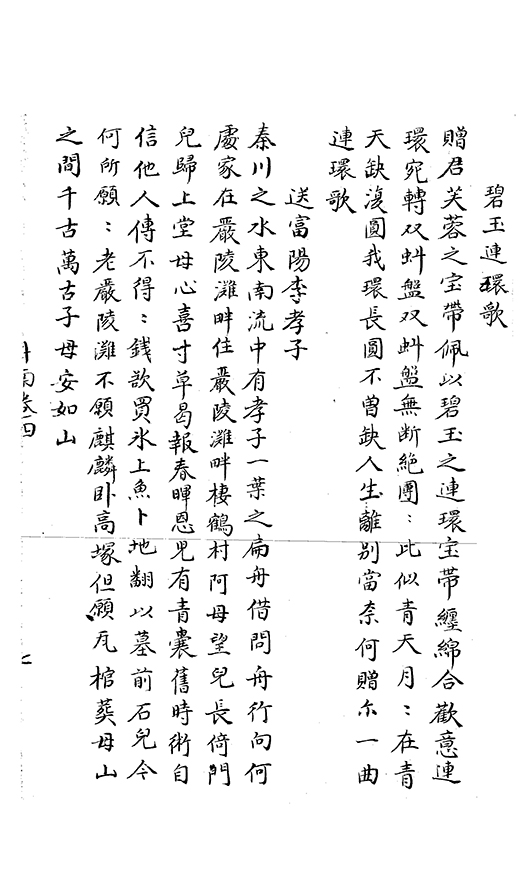 碧玉連環歌
贈君芙蓉之宝帶佩以碧玉之連環宝帶纏綿合歡意連
環宛轉双虯盤双虯盤無断絕團：此似青天月：在青
天缺復圓我環長圓不曽缺人生離别當奈何贈尔一曲
連環歌
送富陽李孝子
秦川之水東南流中有孝子一葉之扁舟借問舟行向何
處家在嚴陵灘畔住嚴陵灘畔棲鶴村阿母望兒長倚門
兒歸上堂母心喜寸草曷報春暉恩兒有青囊舊時術自
信他人傳不得：錢欲買氷上魚卜地翻以墓前石兒今
何所願：老嚴陵灘不願麒麟卧高塚但願瓦棺葬母山
之間千古萬古子母安如山
卷四
七